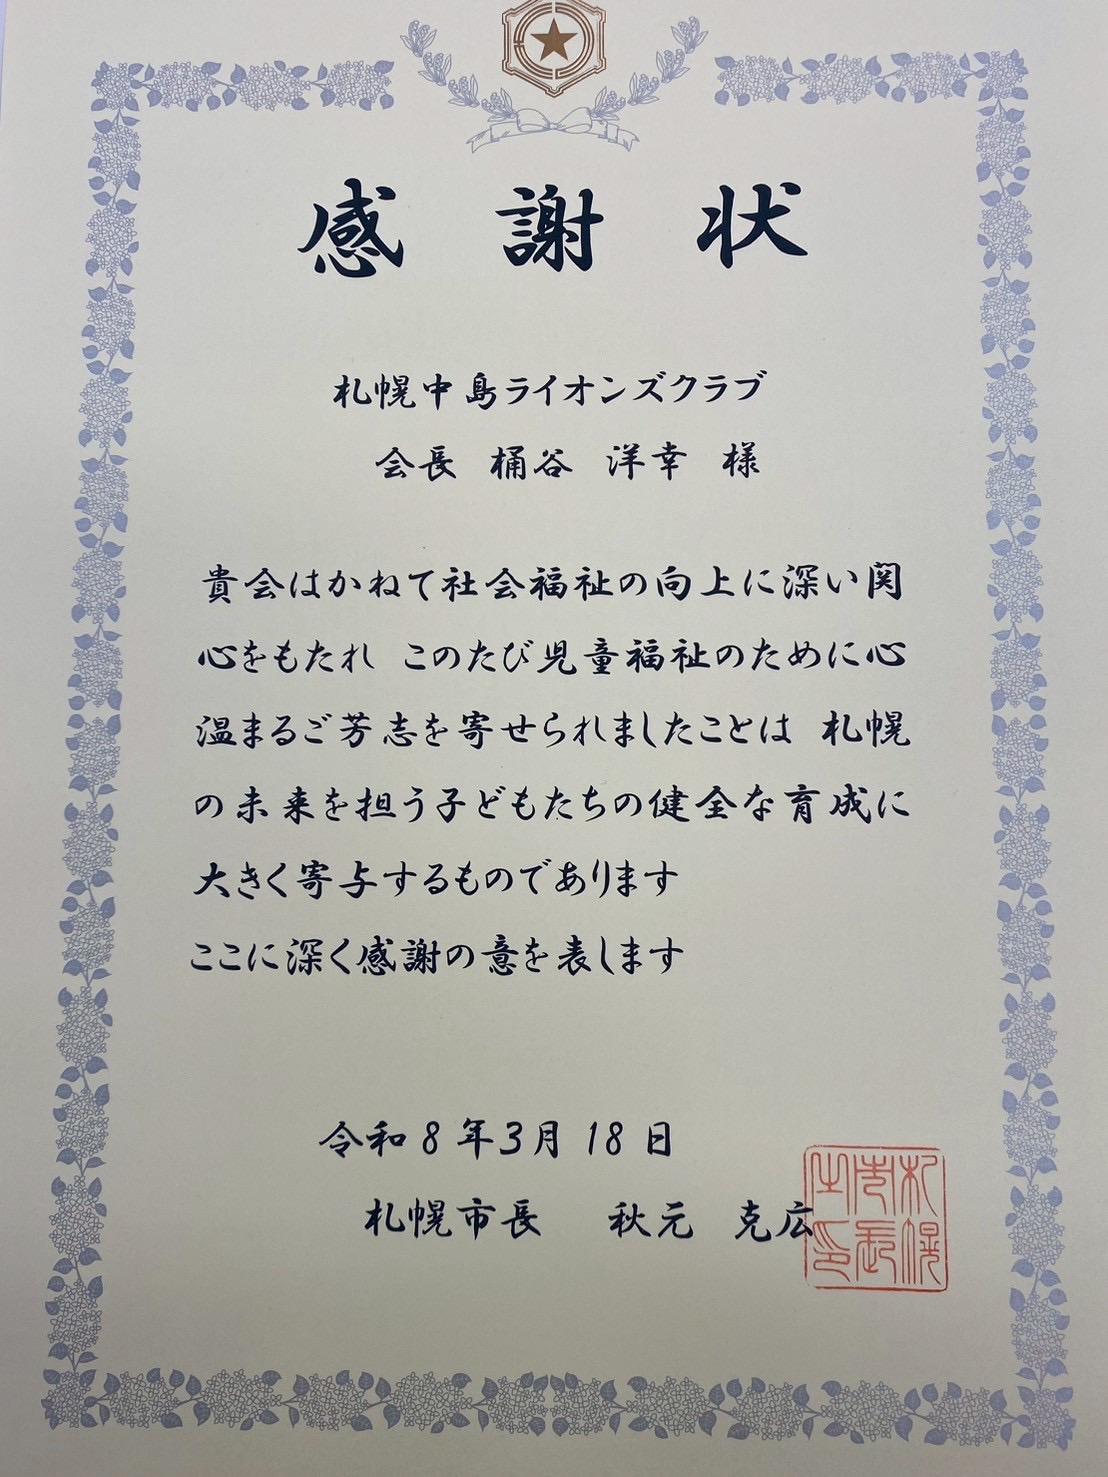 感謝状
札幌中島ライオンズクラブ
会長 桶谷 洋幸 様
貴会はかねて社会福祉の向上に深い関
心をもたれ このたび児童福祉のために心
温まるご芳志を寄せられましたことは 札幌
の未来を担う子どもたちの健全な育成に
大きく寄与するものであります
ここに深く感謝の意を表します
令和8年3月18日
札幌市長 秋元 克広
札幌
市長
之印